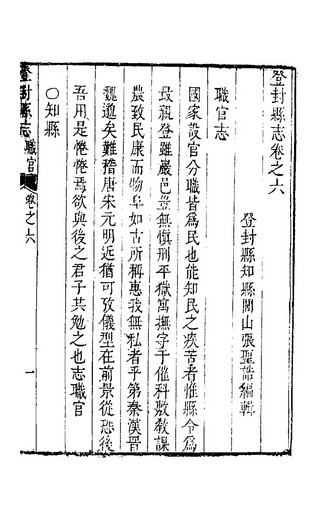 登封縣志卷之六
登封縣知縣關山張聖誥編輯
職官志
國家設官分職皆爲民也能知民之疾苦者惟縣令爲
最親登雖巖邑豈無慎刑平獄寓撫字于催科敷教課
農致民康而物阜如古所稱惠我無私者乎第秦漢晉
魏邈矣難稽唐宋元明近猶可攷儀型在前景從恐後
吾用是惓惓焉欲與後之君子共勉之也志職官
○知縣
登封縣志 職官 卷之六 一